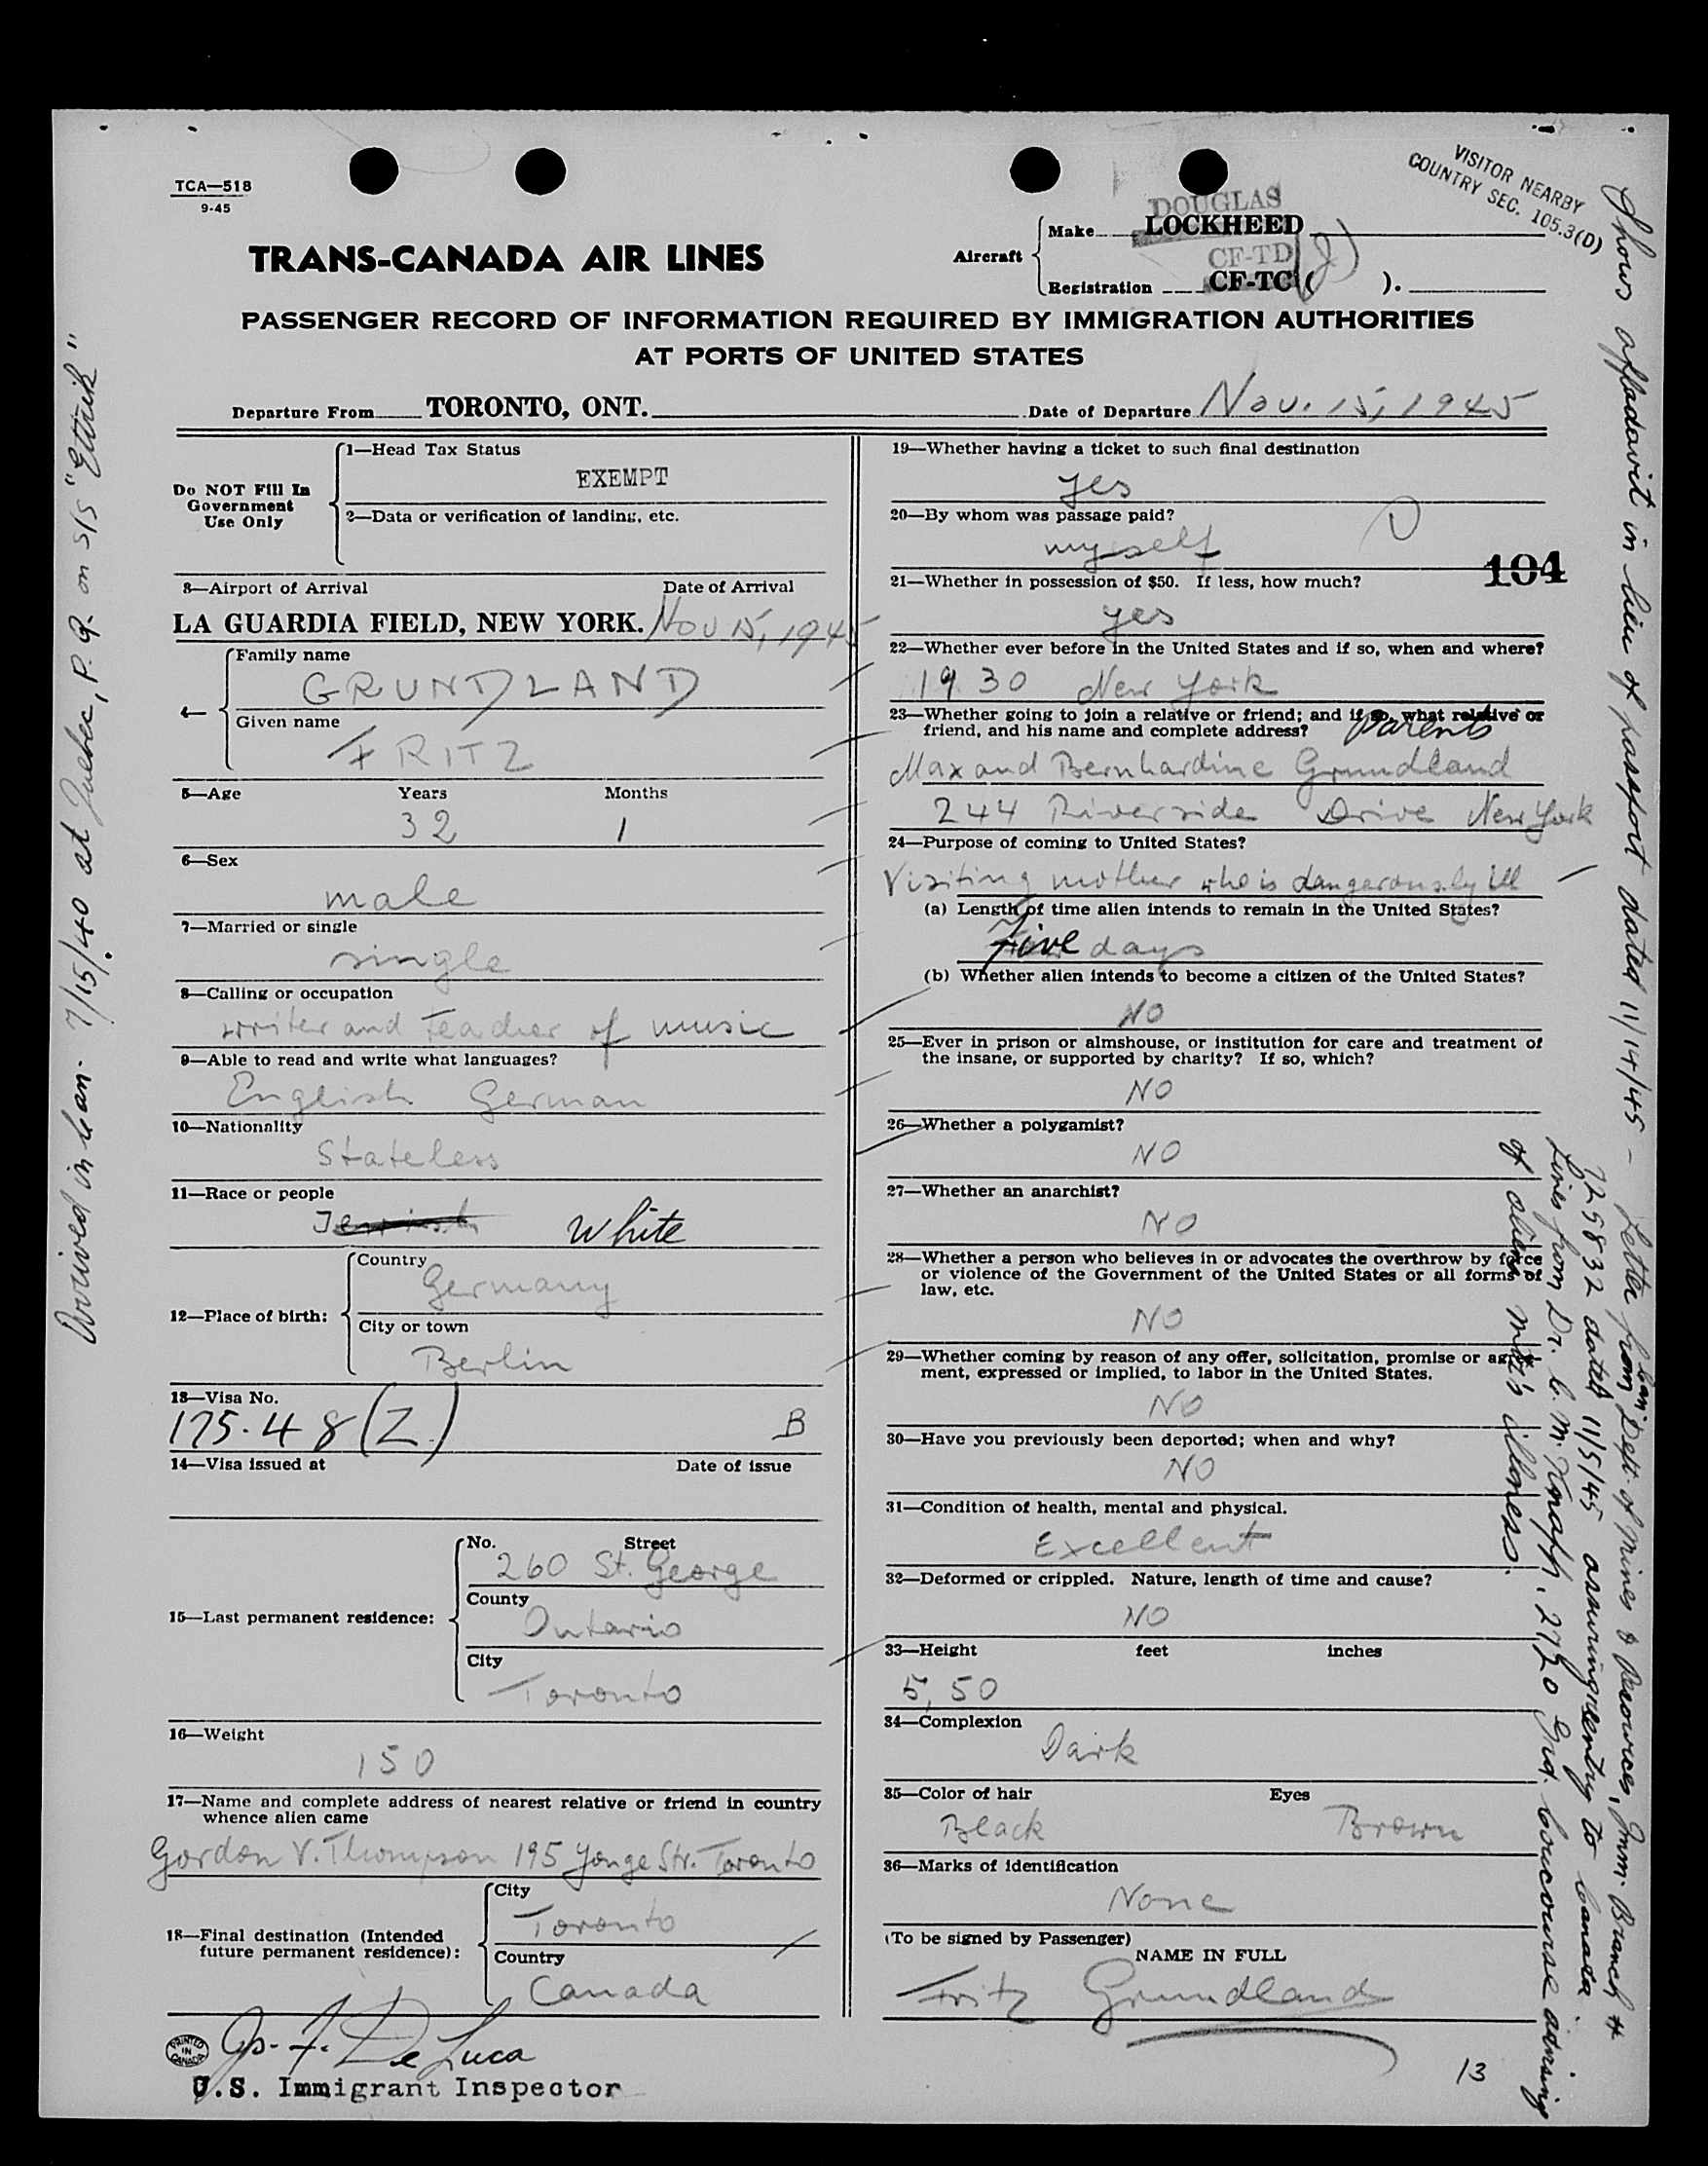 TCA—518
9-45
VISITOR NEARBY
COUNTRY SEC. 105.3(D)
TRANS-CANADA AIR LINES
Aircraft
DOUGLAS
Make LOCKHEED
CF-TD
Registration CF-TC ( ).
PASSENGER RECORD OF INFORMATION REQUIRED BY IMMIGRATION AUTHORITIES
AT PORTS OF UNITED STATES
Departure From TORONTO, ONT. Date of Departure Nov. 15, 1945
Do NOT Fill In
Government
Use Only
1—Head Tax Status
EXEMPT
2—Data or verification of landing, etc.
3—Airport of Arrival Date of Arrival
LA GUARDIA FIELD, NEW YORK. Nov 15, 1945
4—
Family name
GRUNDLAND
Given name
FRITZ
5—Age Years Months
32 1
6—Sex
male
7—Married or single
single
8—Calling or occupation
writer and teacher of music
9—Able to read and write what languages?
English German
10—Nationality
Stateless
11—Race or people
Jewish White
12—Place of birth:
Country
Germany
City or town
Berlin
13—Visa No.
175.48(Z) B
14—Visa issued at Date of issue
15—Last permanent residence:
No. Street
260 St. George
County
Ontario
City
Toronto
16—Weight
150
17—Name and complete address of nearest relative or friend in country
whence alien came
Gordon V. Thompson 195 Yonge Str. Toronto
18—Final destination (Intended
future permanent residence):
City
Toronto
Country
Canada
PRINTED
IN
CANADA
Jos. F. De Luca
U.S. Immigrant Inspector
19—Whether having a ticket to such final destination
yes
20—By whom was passage paid?
myself
104
21—Whether in possession of $50. If less, how much?
yes
22—Whether ever before in the United States and if so, when and where?
1930 New York
23—Whether going to join a relative or friend; and if so, what relative or
friend, and his name and complete address? Parents
Max and Bernhardine Grundland
244 Riverside Drive New York
24—Purpose of coming to United States?
Visiting mother who is dangerously ill
(a) Length of time alien intends to remain in the United States?
Five days
(b) Whether alien intends to become a citizen of the United States?
NO
25—Ever in prison or almshouse, or institution for care and treatment of
the insane, or supported by charity? If so, which?
NO
26—Whether a polygamist?
NO
27—Whether an anarchist?
NO
28—Whether a person who believes in or advocates the overthrow by force
or violence of the Government of the United States or all forms of
law, etc.
NO
29—Whether coming by reason of any offer, solicitation, promise or agree-
ment, expressed or implied, to labor in the United States.
NO
30—Have you previously been deported; when and why?
NO
31—Condition of health, mental and physical.
Excellent
32—Deformed or crippled. Nature, length of time and cause?
NO
33—Height feet inches
5,50
34—Complexion
Dark
35—Color of hair Eyes
Black Brown
36—Marks of identification
None
(To be signed by Passenger)
NAME IN FULL
Fritz Grundland
13
Arrived in Can. 7/15/40 at Quebec, P.Q. on S/S "Ettrick"
Shows affadavit in lieu of passport dated 11/14/45 - Letter from Can. Dept. of Mines & Resources, Imm. Branch #
L25832 dated 11/5/45 assuring reentry to Canada.
Lines from Dr. C. M. Knapp, 2720 Grd. Concourse advising
of alien's mother's illness.